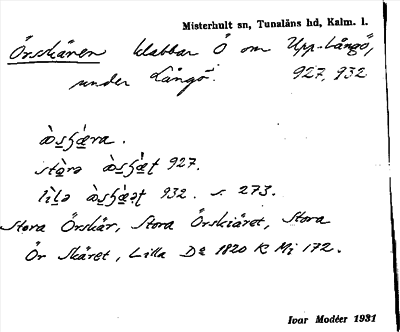 Misterhult sn, Tunaläns hd, Kalm. l.
Örskären klabbar Ö om Upp-Långö,
under Långö. 927, 932
stọrə 927.
lìlə 932. s. 273.
Stora Örskär, Stora Örskiäret, Stora
Ör Skäret, Lilla Do 1820 K Mi 172.
Ivar Modéer 1931